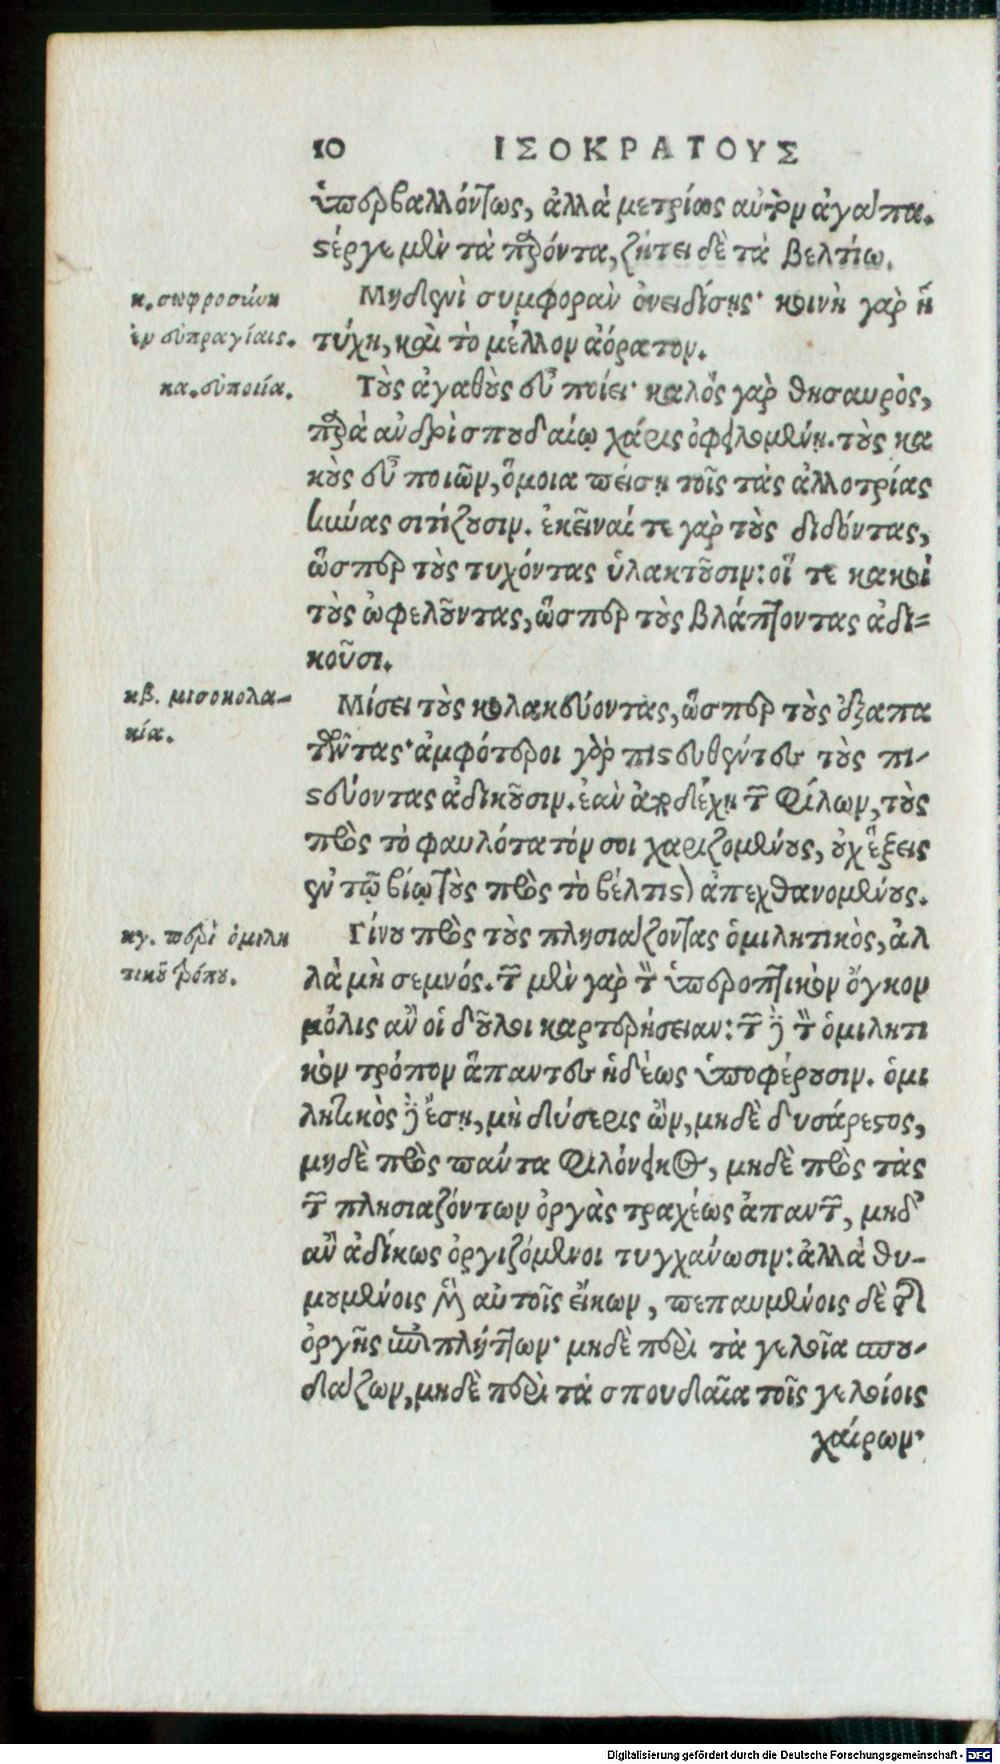 10 ΙΣΟΚΡΑΤΟΥΣ
ὑπερβαλλόντως, ἀλλὰ μετρίως αὐτὴν ἀγάπα.
στέργε μὲν τὰ παρόντα, ζήτει δὲ τὰ βελτίω.
κ. σωφροσύνη
Μηδενὶ συμφορὰν ὀνειδίσῃς· κοινὴ γὰρ ἡ
ἐν εὐπραγίαις.
τύχη, καὶ τὸ μέλλον ἀόρατον.
κα. εὐποιία.
Τοὺς ἀγαθοὺς εὖ ποίει· καλὸς γὰρ θησαυρὸς,
παρὰ ἀνδρὶ σπουδαίῳ χάρις ὀφειλομένη. τοὺς κα
κοὺς εὖ ποιῶν, ὅμοια πείσῃ τοῖς τὰς ἀλλοτρίας
κύνας σιτίζουσιν. ἐκεῖναί τε γὰρ τοὺς διδόντας,
ὥσπερ τοὺς τυχόντας ὑλακτοῦσιν: οἵ τε κακοὶ
τοὺς ὠφελοῦντας, ὥσπερ τοὺς βλάπτοντας ἀδι=
κοῦσι.
κβ. μισοκολα-
κία.
Μίσει τοὺς κολακεύοντας, ὥσπερ τοὺς ἐξαπα
τῶντας· ἀμφότεροι γὰρ πιστευθέντες τοὺς πι-
στεύοντας ἀδικοῦσιν. ἐὰν ἀποδέχῃ τῶν φίλων, τοὺς
πρὸς τὸ φαυλότατόν σοι χαριζομένους, οὐχ ἕξεις
ἐν τῷ βίῳ τοὺς πρὸς τὸ βέλτιστον ἀπεχθανομένους.
κγ. περὶ ὁμιλη
τικοῦ τρόπου.
Γίνου πρὸς τοὺς πλησιάζοντας ὁμιλητικὸς, ἀλ
λὰ μὴ σεμνός. τὸν μὲν γὰρ τῶν ὑπεροπτικὸν ὄγκον
μόλις ἂν οἱ δοῦλοι καρτερήσειαν: τὸν δὲ τῶν ὁμιλητι
κὸν τρόπον ἅπαντες ἡδέως ὑποφέρουσιν. ὁμι
λητικὸς δὲ ἔσῃ, μὴ δύσερις ὢν, μηδὲ δυσάρεστος,
μηδὲ πρὸς πάντα φιλόνεικος, μηδὲ πρὸς τὰς
τῶν πλησιαζόντων ὀργὰς τραχέως ἀπαντῶν, μηδ'
ἂν ἀδίκως ὀργιζόμενοι τυγχάνωσιν: ἀλλὰ θυ-
μουμένοις μὲν αὐτοῖς εἴκων, πεπαυμένοις δὲ τῆς
ὀργῆς ἐπιπλήττων· μηδὲ περὶ τὰ γελοῖα σπου-
δάζων, μηδὲ περὶ τὰ σπουδαῖα τοῖς γελοίοις
χαίρων·
Digitalisierung gefördert durch die Deutsche Forschungsgemeinschaft - DFG